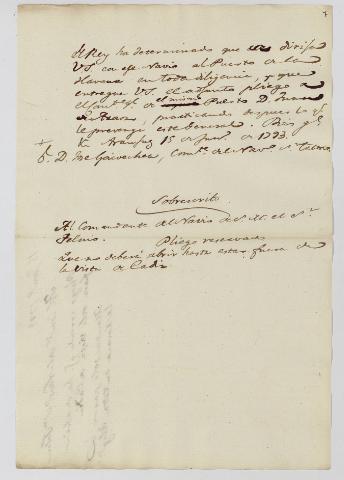 El Rey ha determinado que se dirija
VS. con ese Navio al Puerto de la
Havana con toda diligencia, y que
entregue VS. el adjunto pliego a
el Comte. gl. de el mismo Puerto D. Juan
de Araoz, practicando despues lo qe.
le prevenga este General. Dios gue.
Aranjuez 15 de Junio de 1793.
D. Goicoechea, Comte. del Navo. S. Telmo
Sobrescrito
Al Comandante del Navio de S. M. el Sn.
Telmo. Pliego reservado
que no deberá abrir hasta estar fuera de
la vista de Cadiz